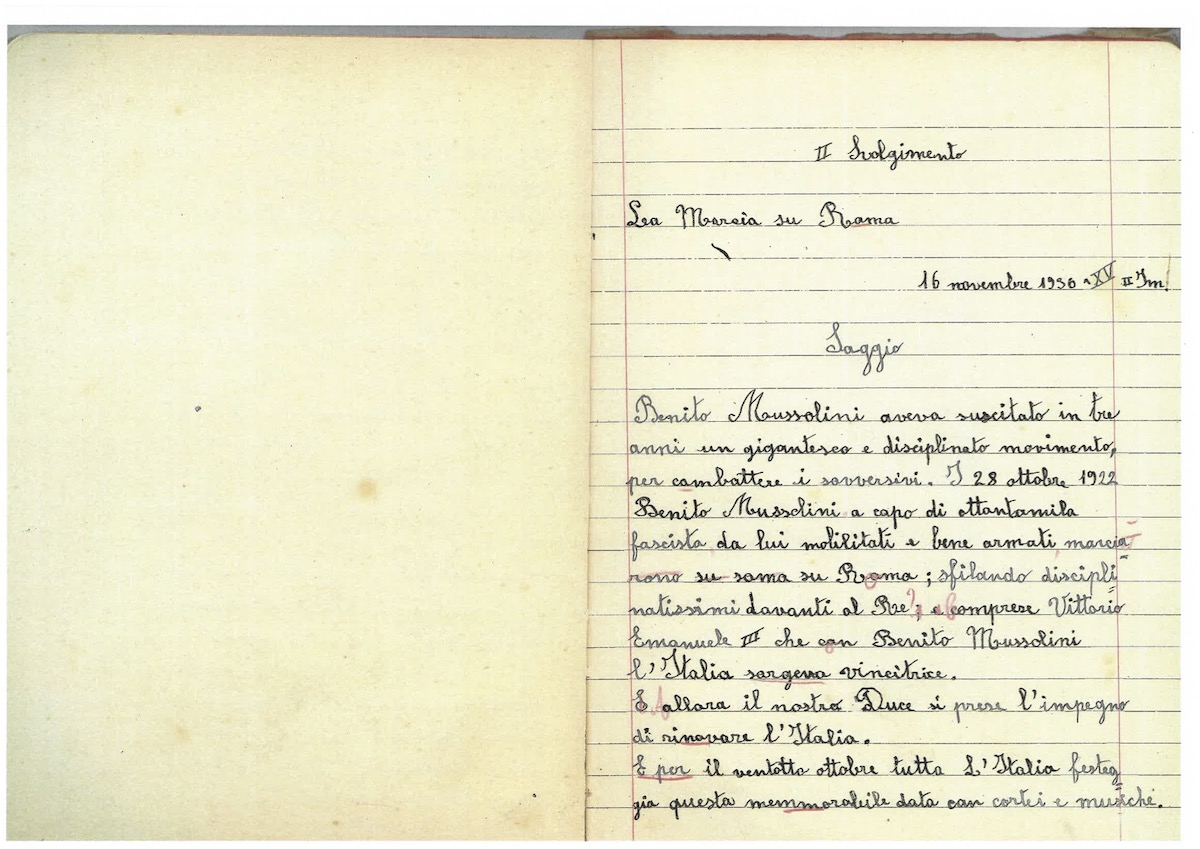 II Svolgimento
La Marcia su Rama
16 novembre 1936 XV II Im.
Saggio
Benito Mussolini aveva suscitato in tre
anni un gigantesco e disciplinato movimento,
per cambattere i sovversivi. I 28 ottobre 1922
Benito Mussolini a capo di ottantamila
fascista da lui mobilitati e bene armati marcia
rono su soma su Roma; sfilando discipli
natissimi davanti al Re; e comprese Vittorio
Emanuele III che con Benito Mussolini
l'Italia sargeva vincitrice.
E allora il nostro Duce si prese l'impegno
di rinovare l'Italia.
E per il ventotto ottobre tutta L'Italia festeg
gia questa memmorabile data can cortei e musiche.